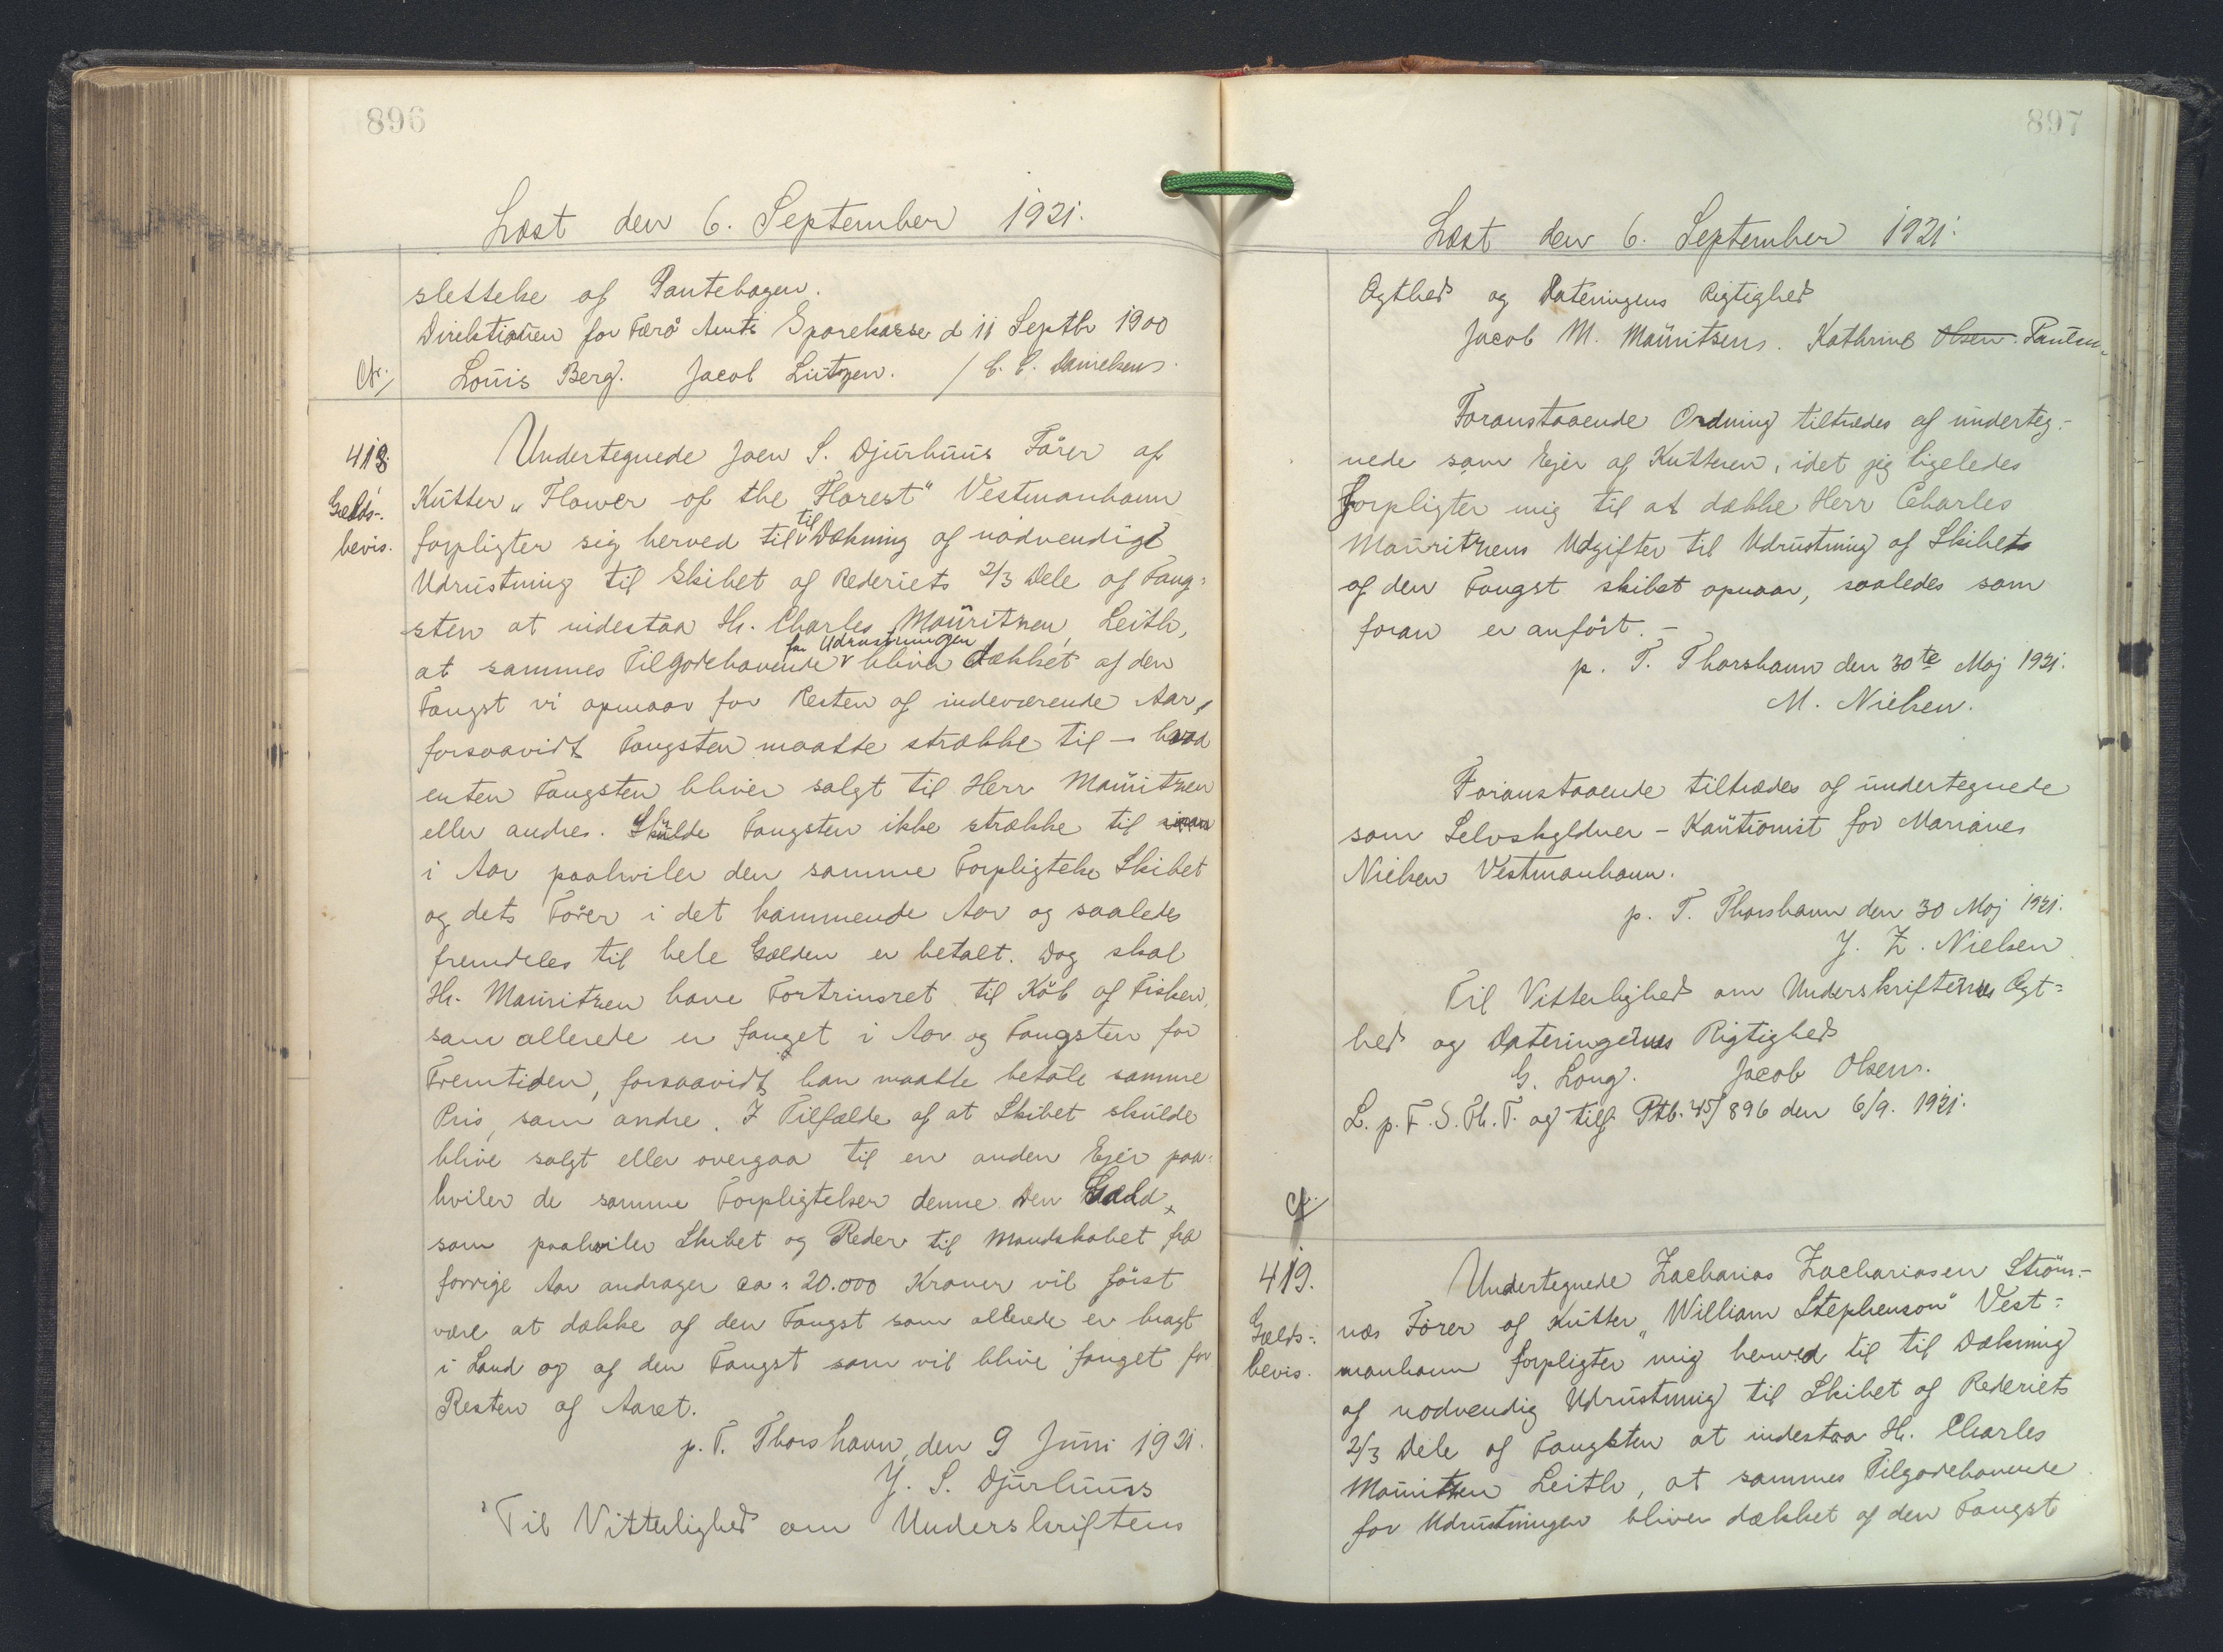 896
Læst den 6. September 1921.
slettelse af Pantebogen.
Direktionen for Færø Amts Sparekasse d 11 Septbr 1900
Cfr. Louis Berg. Jacob Lützen. / C. C. Danielsen.
418.
Gælds-
bevis.
Undertegnede Joen S. Djurhuus Förer af
Kutter „Flower of the Florest" Vestmanhavn
forpligter sig herved til til Dækning af nödvendigt
Udrustning til Skibet af Rederiets 2/3 Dele af Fang=
sten at indestaa Hr. Charles Mauritzen, Leith,
at sammes Tilgodehavende for Udrustningen bliver dækket af den
Fangst vi opnaar for Resten af indeværende Aar,
forsaavidt Fangsten maatte strække til – hvad
enten Fangsten bliver solgt til Herr Mauritzen
eller andre. Skulde Fangsten ikke strække til
i Aar paahviler den samme Forpligtelse Skibet
og dets Förer i det kommende Aar og saaledes
fremdeles til hele Gælden er betalt. Dog skal
Hr. Mauritzen have Fortrinsret til Köb af Fisken,
som allerede er fanget i Aar og Fangsten for
Fremtiden, forsaavidt han maatte betale samme
Pris, som andre. I Tilfælde af at Skibet skulde
blive solgt eller overgaa til en anden Ejer paa=
hviler de samme Forpligtelser denne. Den Gæld,
som paahviler Skibet og Reder til Mandskabet fra
forrige Aar andrager ca: 20.000 Kroner vil först
være at dække af den Fangst som allerede er bragt
i Land og af den Fangst som vil blive fanget for
Resten af Aaret.
p. T. Thorshavn, den 9 Juni 1921.
J. S. Djurhuus
Til Vitterlighed om Underskriftens
897
Læst den 6. September 1921.
Ægthed og Dateringens Rigtighed
Jacob M. Mauritsen. Kathrine Olsen. Paulsen
Foranstaaende Ordning tiltrædes af underteg-
nede som Ejer af Kutteren, idet jeg ligeledes
forpligter mig til at dække Herr Charles
Mauritzens Udgifter til Udrustning af Skibets
af den Fangst skibet opnaar, saaledes som
foran er anfört. –
p. T. Thorshavn den 30te Maj 1921.
M. Nielsen.
Foranstaaende tiltrædes af undertegnede
som Selvskyldner-Kautionist for Marianes
Nielsen Vestmanhavn.
p. T. Thorshavn den 30 Maj 1921.
J. Z. Nielsen
Til Vitterlighed om Underskriftens Ægt=
hed og Dateringernes Rigtighed
G. Long. Jacob Olsen.
L. p. F. S. Th. T. og tilf. Ptb. 45/896 den 6/9. 1921.
Cfr.
419.
Gælds-
bevis.
Undertegnede Zacharias Zachariasen Ström-
næs Förer af Kutter „William Stephenson" Vest=
manhavn forpligter mig herved til til Dækning
af nodvendig Udrustning til Skibet af Rederiets
2/3 Dele af Fangsten at indestaa Hr. Charles
Mauritzen Leith, at sammes Tilgodehavende
for Udrustningen bliver dækket af den Fangst